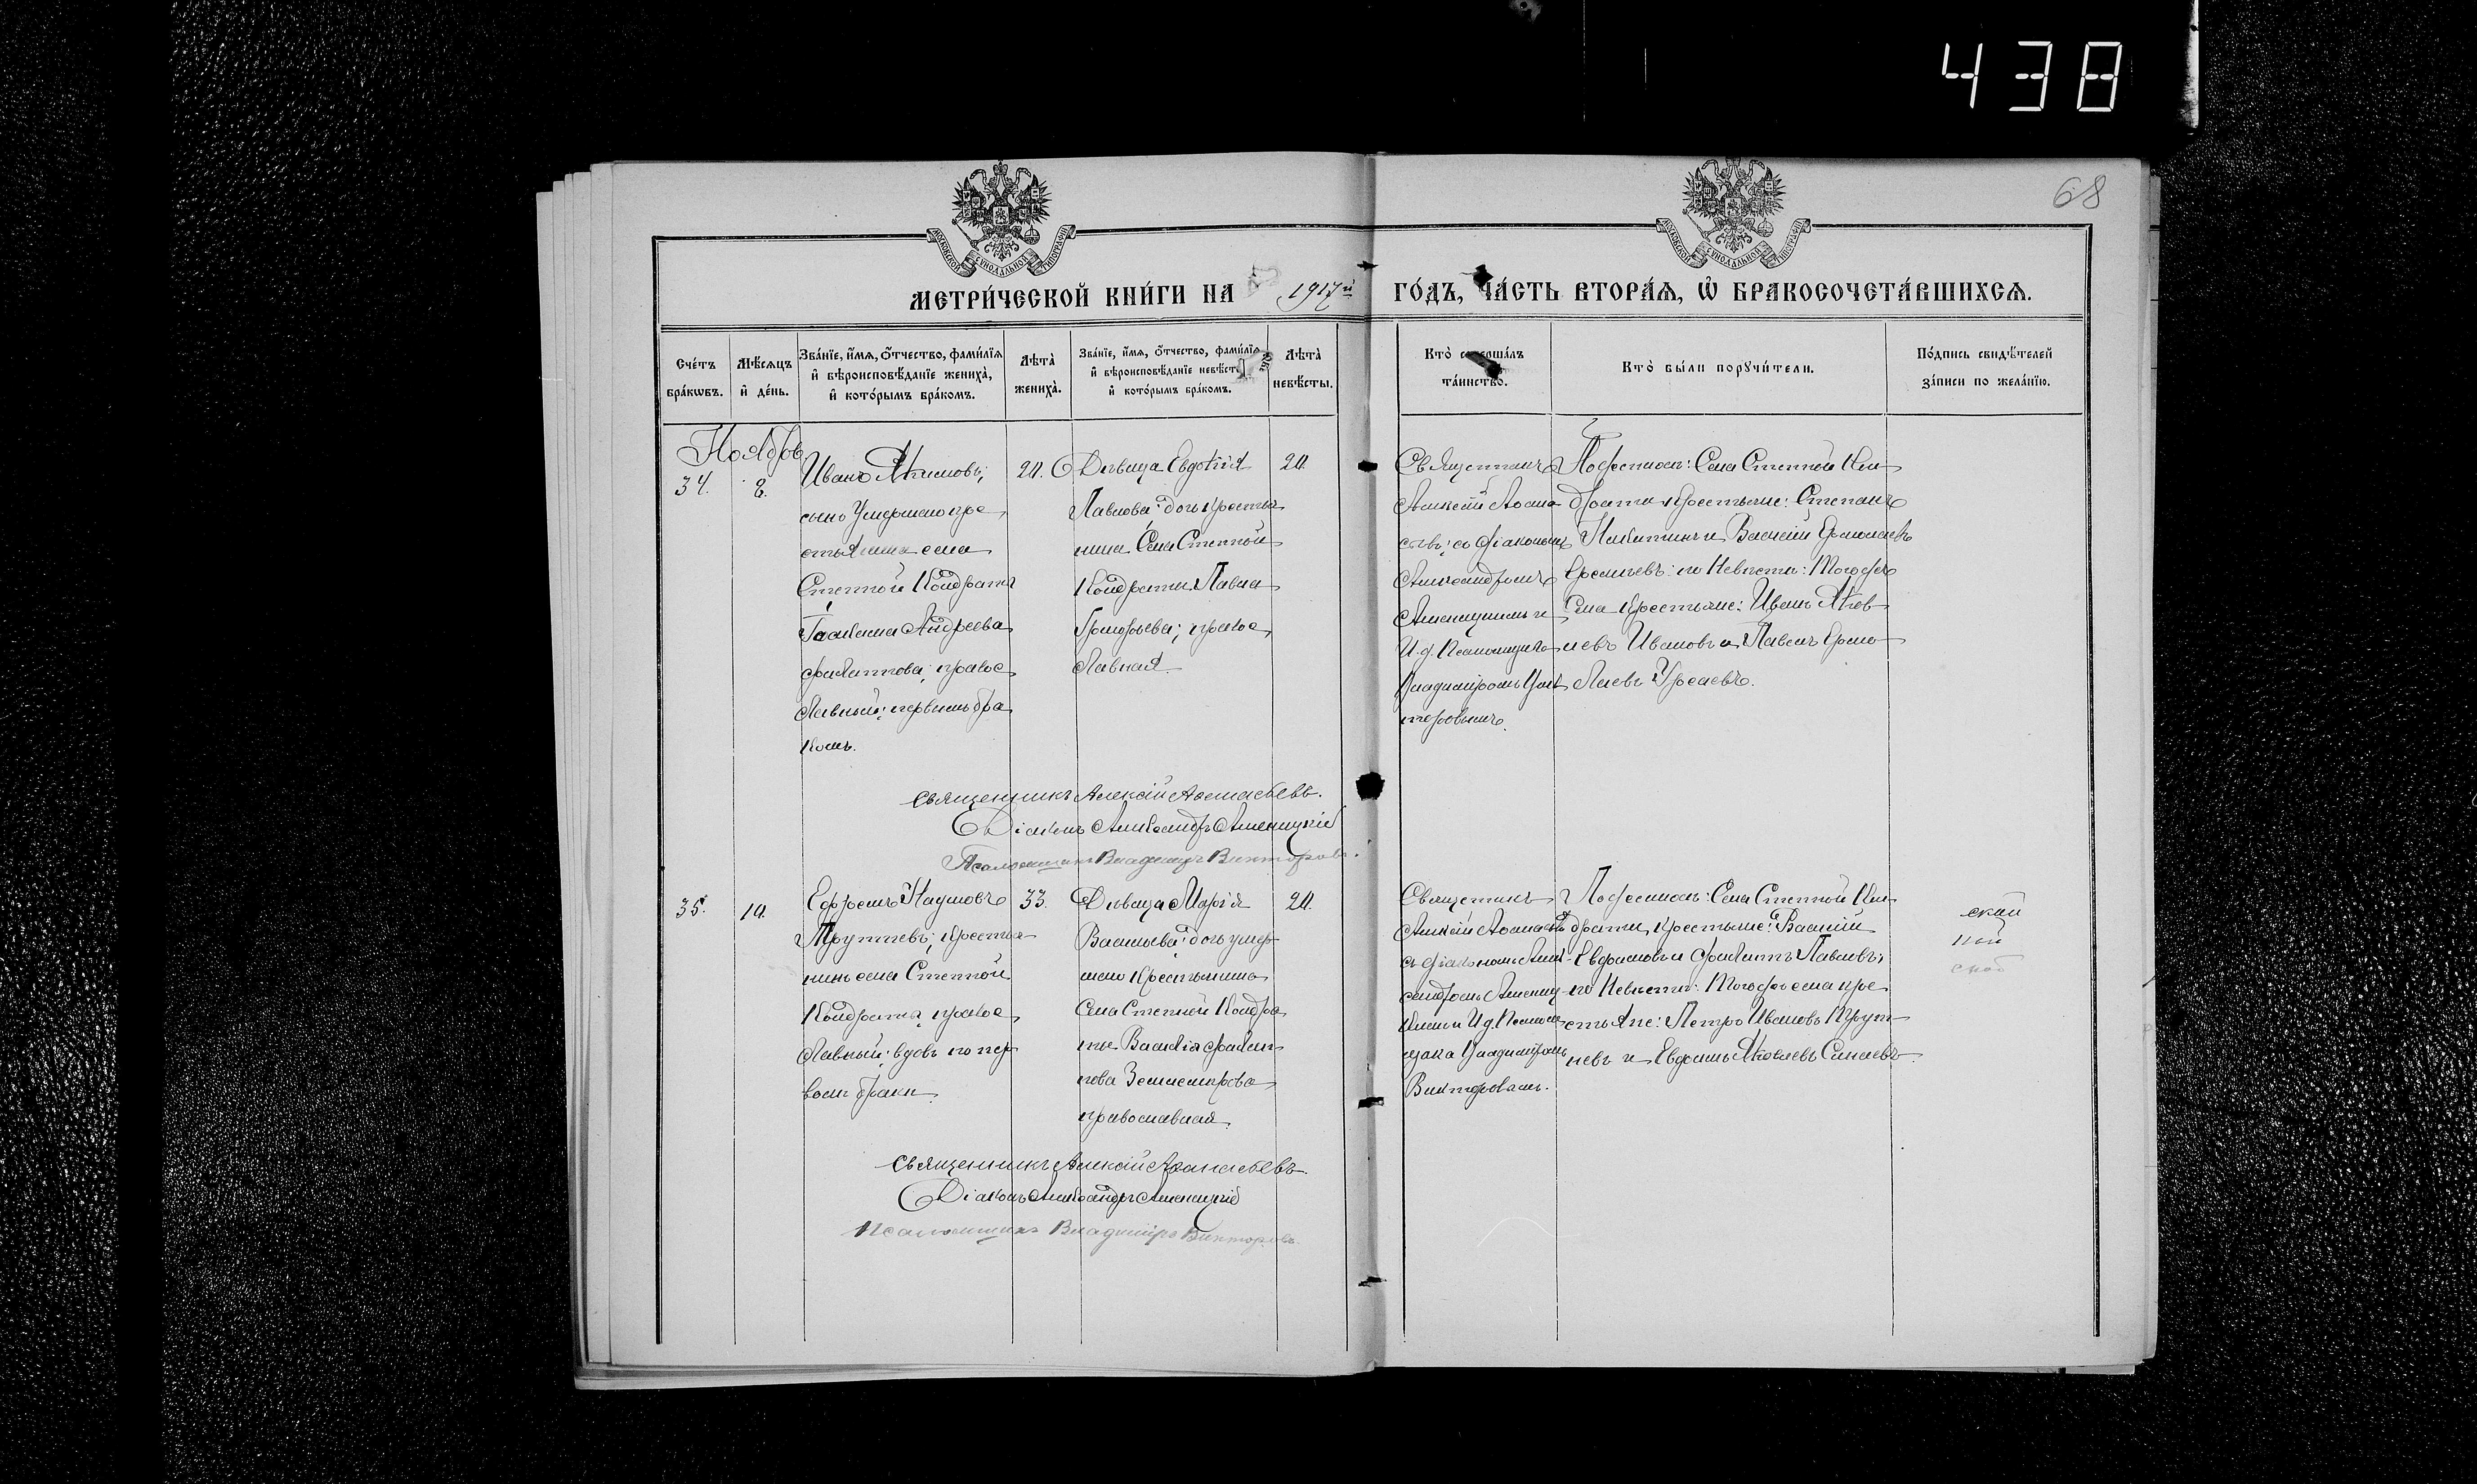 438
68
МОСКОВСКОЙ СУНОДАЛЬНОЙ ТИПОГРАФІИ
МОСКОВСКОЙ СУНОДАЛЬНОЙ ТИПОГРАФІИ
МЕТРИ́ЧЕСКОЙ КНИ́ГИ НА 1917й ГО́ДЪ, ЧА́СТЬ ВТОРА́Я, Ѡ БРАКОСОЧЕТА́ВШИХСЯ.
Сче́тъ бра́кѡвъ.
Мѣ́сяцъ и де́нь.
Зва́нїе, и́мя, о́тчество, фами́лїя
и вѣроисповѣ́данїе жениха̀,
и кото́рымъ бра́комъ.
Лѣта̀ жениха̀.
Зва́нїе, и́мя, о́тчество, фами́лїя
и вѣроисповѣ́данїе невѣ́сты,
и кото́рымъ бра́комъ.
Лѣта̀ невѣ́сты.
Кто̀ соверша́лъ
та́инство.
Кто̀ бы́ли порꙋчи́тели.
По́дпись свидѣ́телей
за́писи по жела́нїю.
Ноябрь
34.
8.
Иванъ Якимовъ;
сынъ умершаго кре
стьянина села
Степной Кондраты
Андреева
Филиппова; правос
лавный; первымъ бра
комъ.
20.
Дѣвица Евдокія
Павлова: дочь крестья
нина Села Степной
Кондраты Павла
Григорьева; правос
лавная
20.
Священникъ
Алексій Аѳана
сьевъ; съ діакономъ
Александромъ
И.д. Псаломщика
Владиміромъ Вик
торовымъ.
По женихѣ: Села Степной Кон
драты крестьяне: Степанъ
Никитинъ и Василій Ермолаевъ
по невѣстѣ: Того же
Села крестьяне: Иванъ Яков
левъ Ивановъ и Павелъ Ермо
лаевъ
Священникъ Алексій Аѳанасьевъ.
Діаконъ Александръ
Псаломщикъ Владиміръ Викторовъ.
35.
10.
Ефремъ Наумовъ
крестья
нинъ села Степной
Кондраты, правос
лавный; вдовъ по пер
вомъ бракѣ.
33.
Дѣвица Марія
Васильева: дочь умер
шаго крестьянина
Села Степной Кондра
ты Василія Филип
пова Землемѣрова
православная.
20.
Священникъ
Алексій Аѳанасьевъ
съ діакономъ Алек
сандромъ
и И.д. Псалом
щика Владиміромъ
Викторовымъ.
По женихѣ: Села Степной Кон
драты, крестьяне: Василій
Евдокимовъ и Филиппъ Павловъ;
по невѣстѣ: Того же села кре
стьяне: Петръ Ивановъ
и Яковлевъ
Священникъ Алексій Аѳанасьевъ.
Діаконъ Александръ
Псаломщикъ Владиміръ Викторовъ.